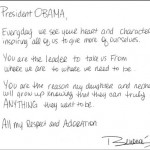 President OBAMA,
Everyday we see your heart and character
inspiring all of us to give more of ourselves.
You are the leader to take us from
where we are to where we need to be.
You are the reason my daughter and nephew
will grow up knowing that they can truly
ANYTHING they want to be.
All my Respect and Adoration